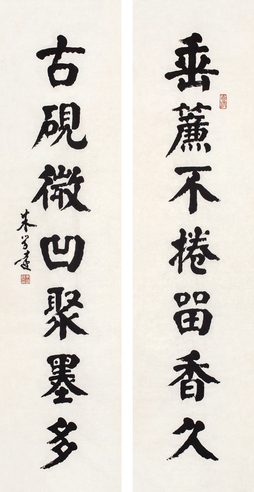 垂簾不捲留香久
古硯微凹聚墨多
朱學達